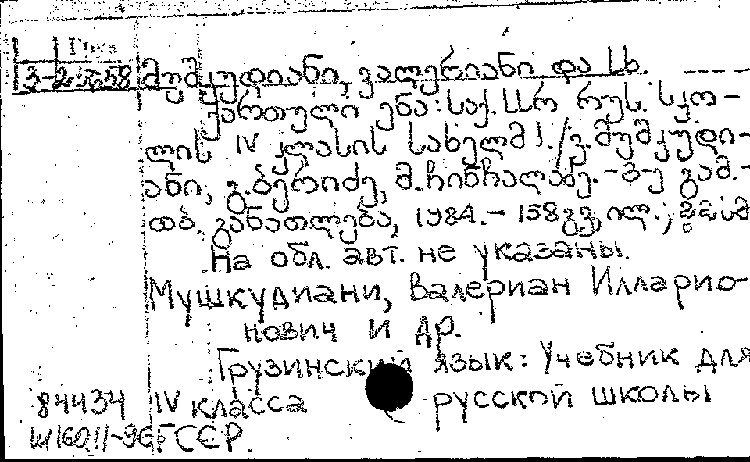 მუშკუდიანი, ვალერიანი და სხ.
ქართული ენა: საქ. სსრ რუს. სკო-
ლის IV კლასის სახელმძ. / ვ. მუშკუდი-
ანი, გ. ბერიძე, მ. ჩინჩალაძე. - მ-ე გამ. -
თბ. განათლება, 1984. - 158 გვ, ილ.;
На обл. авт. не указаны.
Мушкудиани, Валериан Илларио-
нович и др.
Грузинский язык: Учебник для
84434 IV класса русской школы
ГССР.